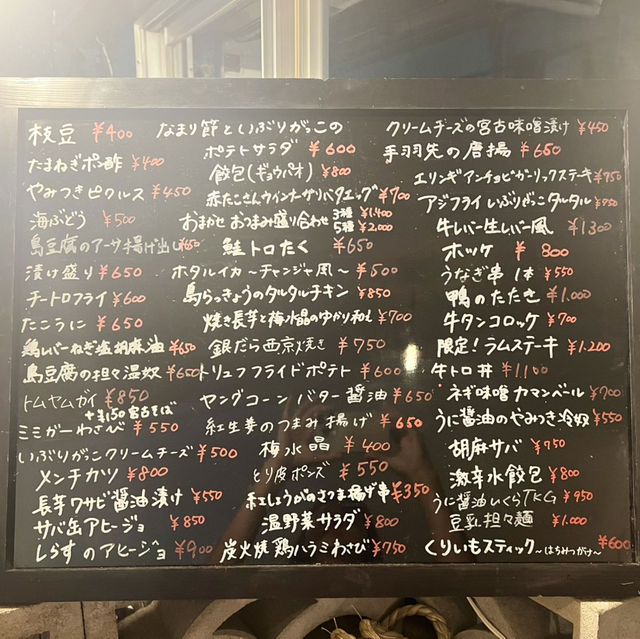 枝豆 ¥400
たまねぎポン酢 ¥400
やみつきピクルス ¥450
海ぶどう ¥500
島豆腐のアーサ揚げ出し ¥650
漬け盛り ¥650
チートロフライ ¥600
たこうに ¥650
鶏レバーねぎ塩胡麻油 ¥650
島豆腐の担々温奴 ¥650
トムヤムガイ ¥850
+¥150宮古そば
ミミガーわさび ¥550
いぶりがっこクリームチーズ ¥500
メンチカツ ¥800
長芋ワサビ醤油漬け ¥550
サバ缶アヒージョ ¥850
しらすのアヒージョ ¥900
なまり節といぶりがっこの
ポテトサラダ ¥600
餃包(ギョウパオ) ¥800
赤たこさんウインナーザリバタエッグ ¥700
おまかせおつまみ盛り合わせ 3種 ¥1.400
5種 ¥2.000
鮭トロたく ¥650
ホタルイカ〜チャンジャ風〜 ¥500
島らっきょうのタルタルチキン ¥850
焼き長芋と梅水晶のゆかり和え ¥700
銀だら西京焼き ¥750
トリュフフライドポテト ¥600
ヤングコーンバター醤油 ¥650
紅生姜のつまみ揚げ ¥650
梅水晶 ¥400
とり皮ポンズ ¥550
紅しょうがのさつま揚げ串 ¥350
温野菜サラダ ¥800
炭火焼鶏ハラミわさび ¥750
クリームチーズの宮古味噌漬け ¥450
手羽先の唐揚 ¥650
エリンギアンチョビガーリックステーキ ¥750
アジフライいぶりがっこタルタル ¥750
牛レバー生レバー風 ¥1300
ホッケ ¥800
うなぎ串1本 ¥550
鴨のたたき ¥1.000
牛タンコロッケ ¥700
限定!ラムステーキ ¥1.200
牛トロ丼 ¥1.100
ネギ味噌カマンベール ¥700
うに醤油のやみつき冷奴 ¥550
胡麻サバ ¥750
激辛水餃包 ¥800
うに醤油いくらTKG ¥950
豆乳担々麺 ¥1.000
くりいもスティック〜はちみつがけ〜 ¥600